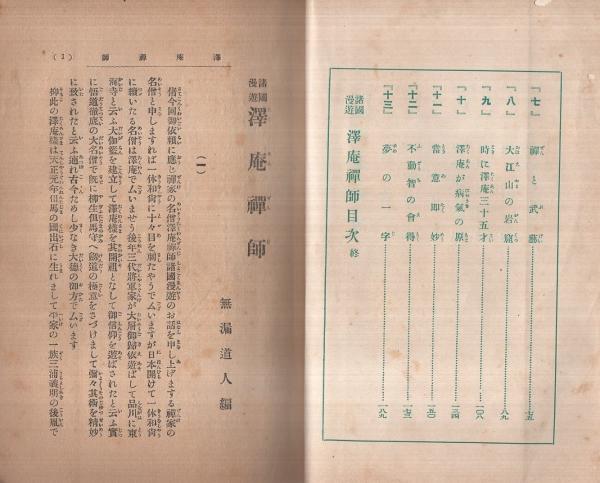 『七』禪と武藝……七五
『八』大江山の岩窟……八九
『九』時に澤庵三十五才……一〇八
『十』澤庵が病氣の原……一三四
『十一』當意卽妙……一五〇
『十二』不動智の會得……一七三
『十三』夢の一字……一八九
諸國漫遊 澤庵禪師目次 終
澤庵禪師 (1)
諸國漫遊 澤庵禪師
無漏道人編
(一)
偖今回御依賴に應じ禪家の名僧澤庵禪師諸國漫遊のお話を申し上げまする禪家の
名僧と申しますれば一休和尙に十々目を刺たやうで厶いますが日本開けて一休和尙
に續いたる名僧は澤庵で厶いませう後年三代將軍家が大層御歸依遊ばして品川に東
海寺と云ふ大伽藍を建立して澤庵樣を其開祖となして御信仰を遊ばされたと云ふ實
に悟道徹底の大名僧で旣に柳生但馬守へ劍道の極意をさづけまして彌々其術を精妙
に致されたと云ふ迚古今ためし少なき大德の御方で厶います
抑此の澤庵樣は天正元年但馬の國出石に生れまして平家の一族三浦義明の後胤で